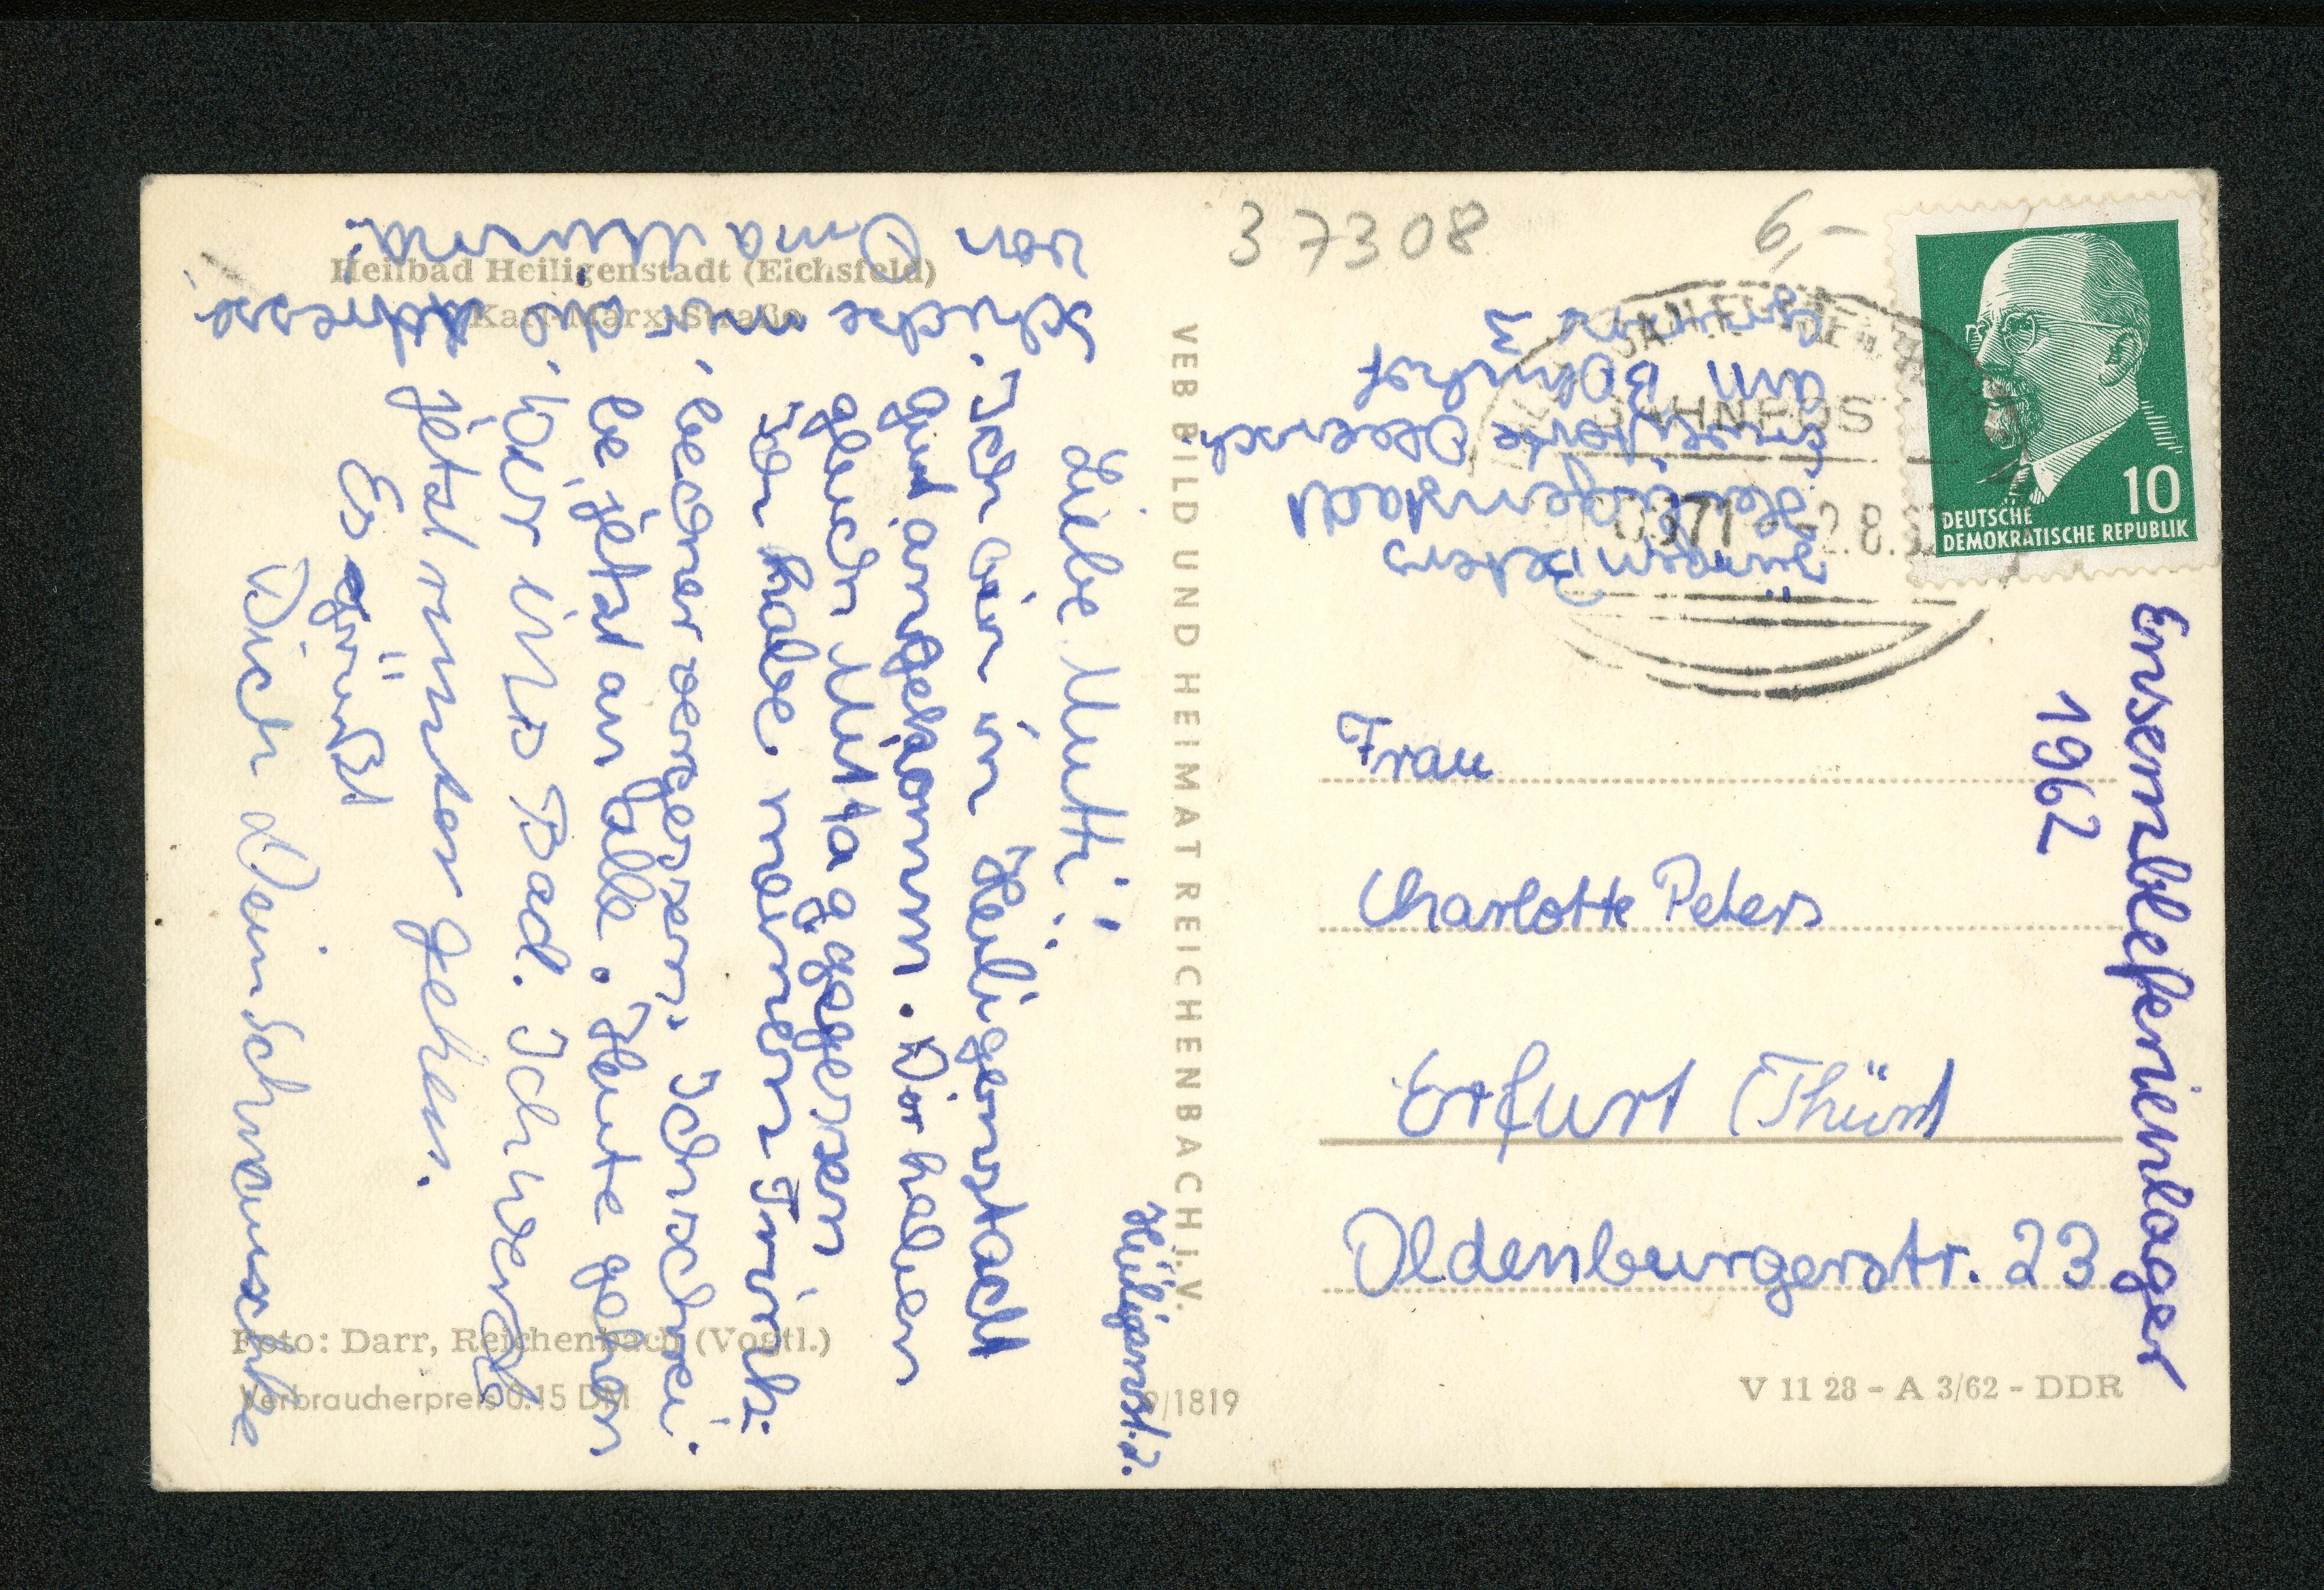 Heilbad Heiligenstadt (Eichsfeld)
Karl-Marx-Straße
Heiligenst. 2.
Liebe Mutti!
Ich bin in Heiligenstadt
gut angekomm. Wir haben
gleich Mittaggegessen
Ich habe meinen
vergessen. Ich
be jetzt an falle. Heute gehen
wir ins Bad. Ich werde
jetzt münter gehen.
Es grüßt
Dich Dein Schwansche
Schicke mir die Adresse
von Oma
Foto: Darr, Reichenbach (Vogtl.)
Verbraucherpreis 0.15 DM
9/1819
VEB BILD UND HEIMAT REICHENBACH i. V.
37308
6,-
Jürgen Peters
Heiligenstadt
am Bahnhof
3
BAHNPOS
0371 -2.8.6
10
DEUTSCHE
DEMOKRATISCHE REPUBLIK
Frau
Charlotte Peters
Erfurt (Thür)
Oldenburgerstr. 23
Ensembleferienlager
1962
V 11 28 - A 3/62 - DDR